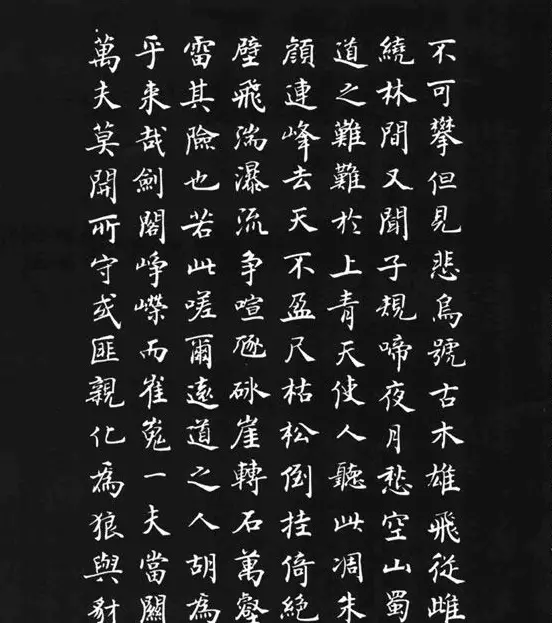 不可攀但見悲鳥號古木雄飛從雌
繞林間又聞子規啼夜月愁空山蜀
道之難難於上青天使人聽此凋朱
顏連峰去天不盈尺枯松倒挂倚絕
壁飛湍瀑流争喧豗砯崖轉石萬壑
雷其險也若此嗟爾遠道之人胡為
乎来哉劍閣崢嶸而崔嵬一夫當關
萬夫莫開所守或匪親化為狼與豺